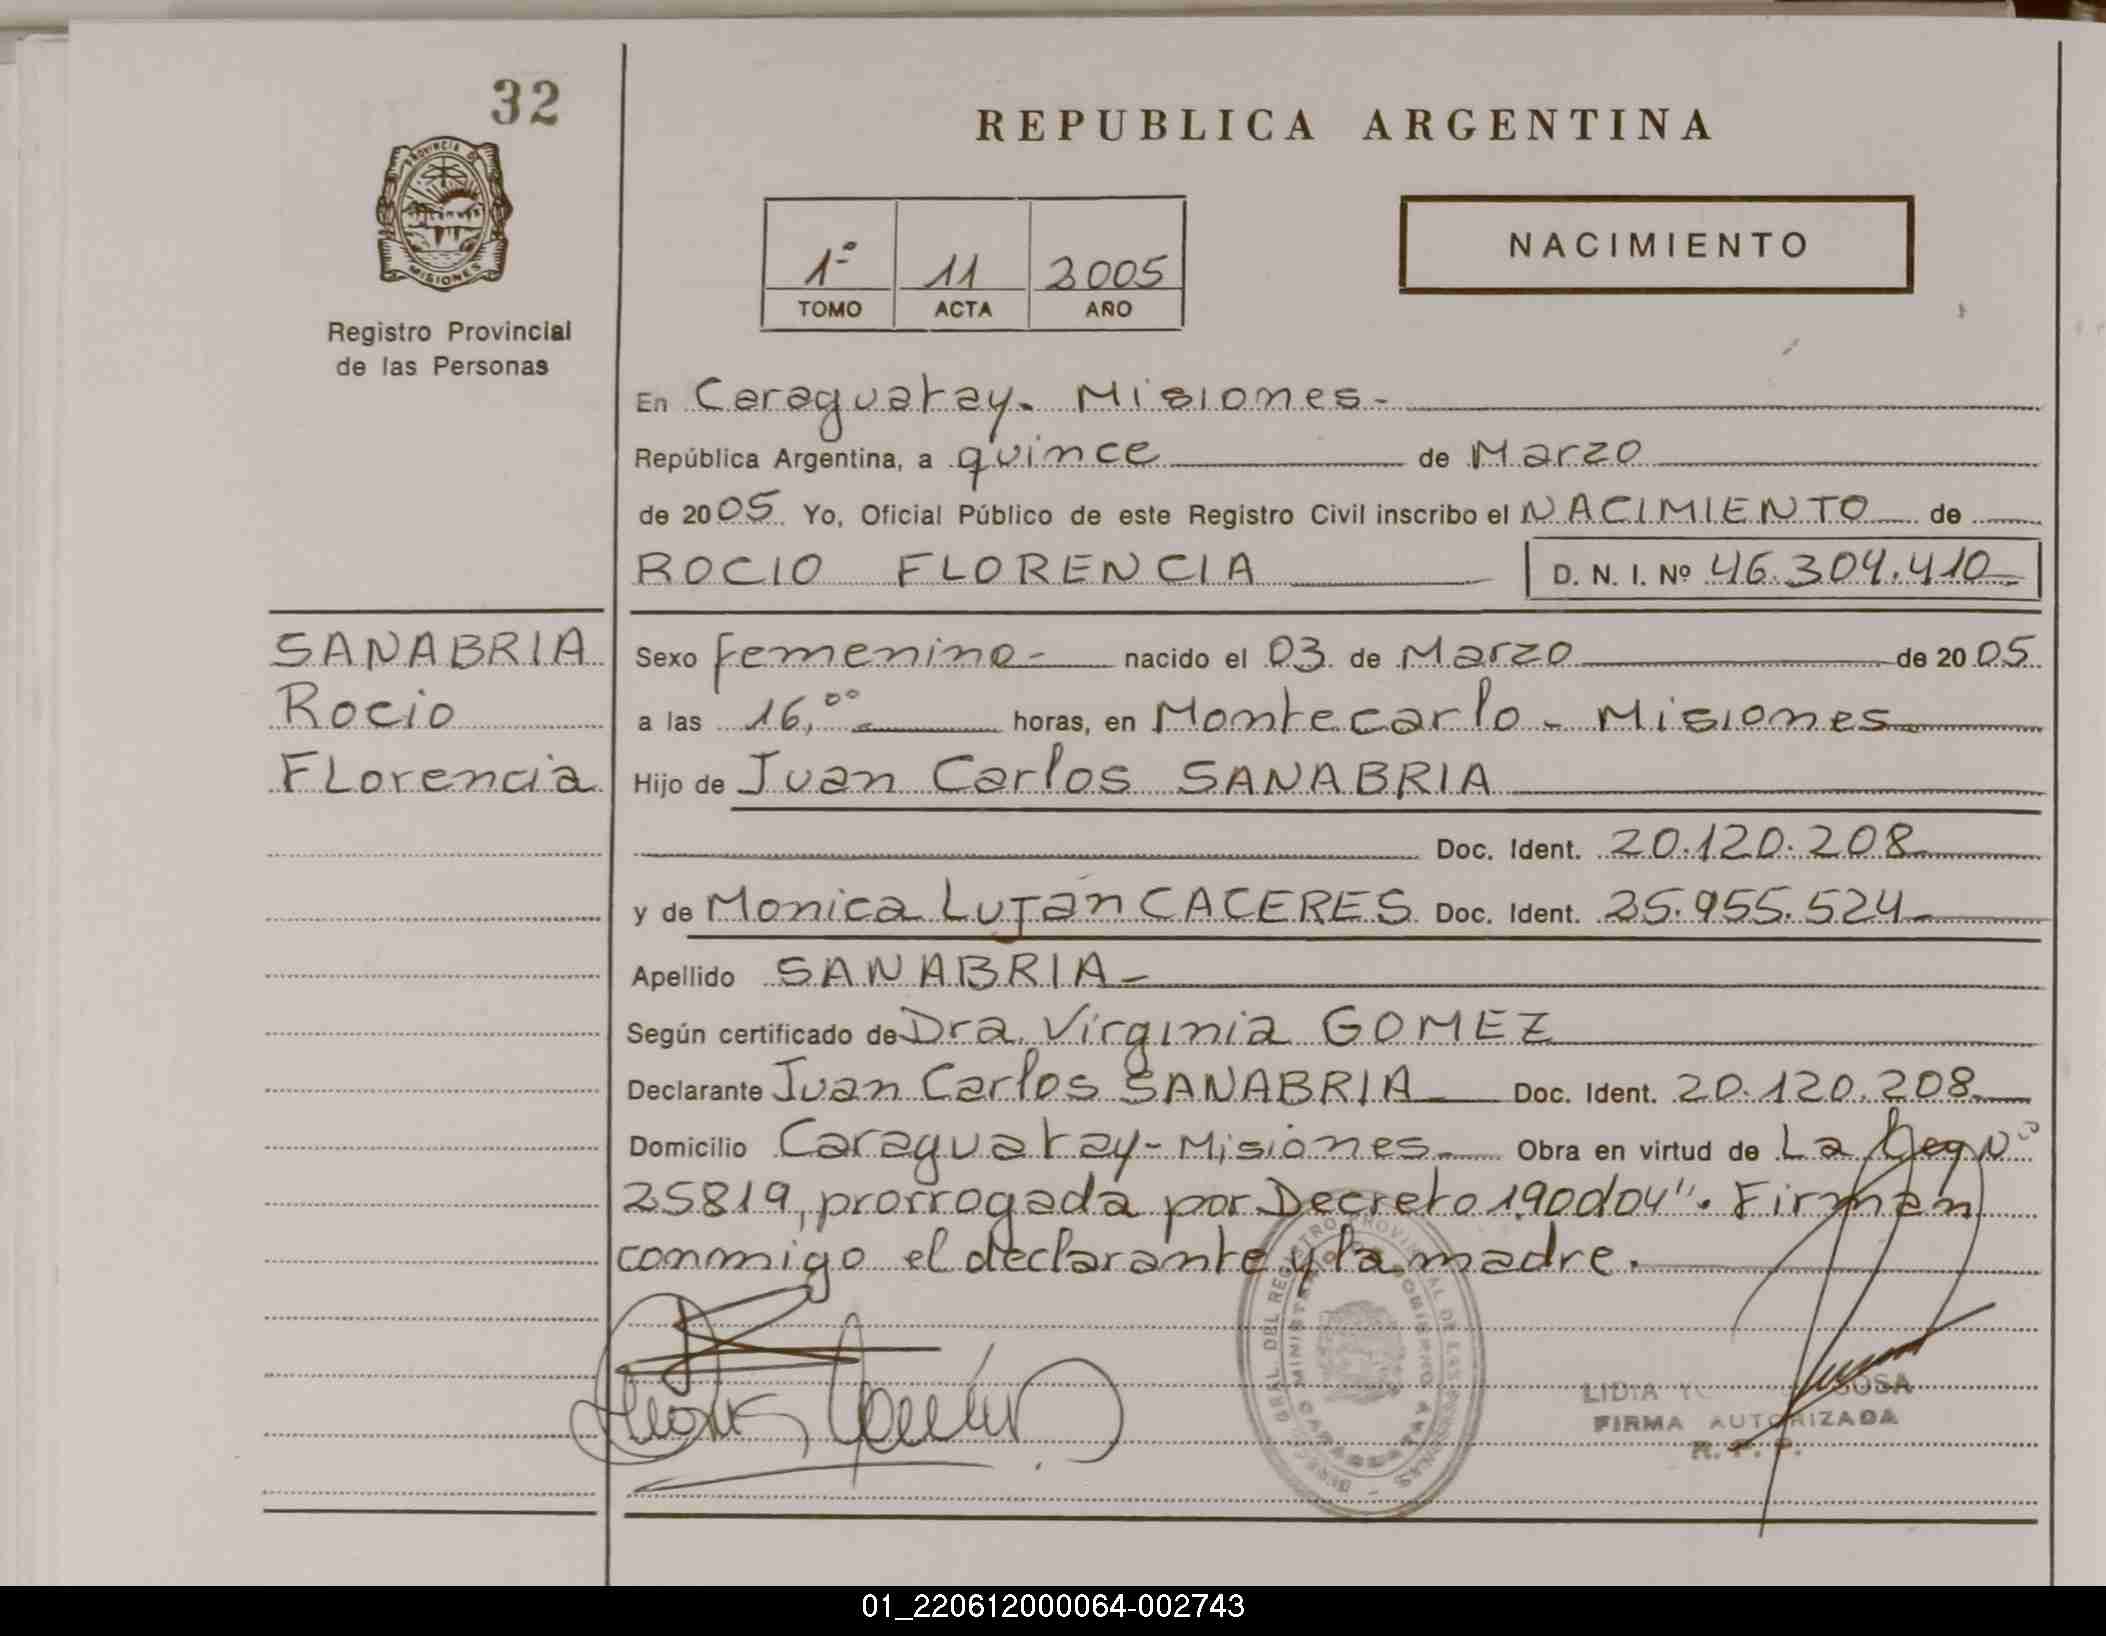 32
REPUBLICA ARGENTINA
PROVINCIA DE
MISIONES
Registro Provincial
de las Personas
1º 11 2005
TOMO ACTA AÑO
NACIMIENTO
En Caraguatay. Misiones.-
República Argentina, a quince de Marzo
de 2005 Yo, Oficial Público de este Registro Civil inscribo el NACIMIENTO de
ROCIO FLORENCIA D. N. I. Nº 46.304.410
SANABRIA
Rocio
FLorencia
Sexo femenino- nacido el 03 de Marzo de 2005
a las 16,00 horas, en Montecarlo - Misiones
Hijo de Juan Carlos SANABRIA
Doc. Ident. 20.120.208
y de Monica Lujan CACERES Doc. Ident. 25.955.524
Apellido SANABRIA-
Según certificado de Dra. Virginia GOMEZ
Declarante Juan Carlos SANABRIA Doc. Ident. 20.120.208
Domicilio Caraguatay-Misiones Obra en virtud de La Nº
25819, prorrogada por Decreto 190004". Firman
conmigo el declarante y la madre.
LIDIA SOSA
FIRMA AUTORIZADA
R. P. P.
01_220612000064-002743